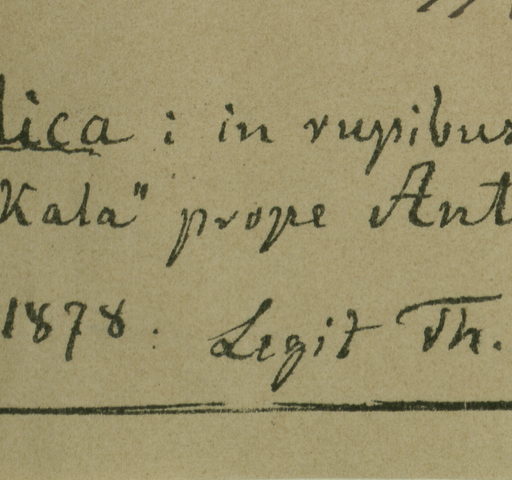 lica : in rupibus
Kala" prope Ant
1878. Legit Th.